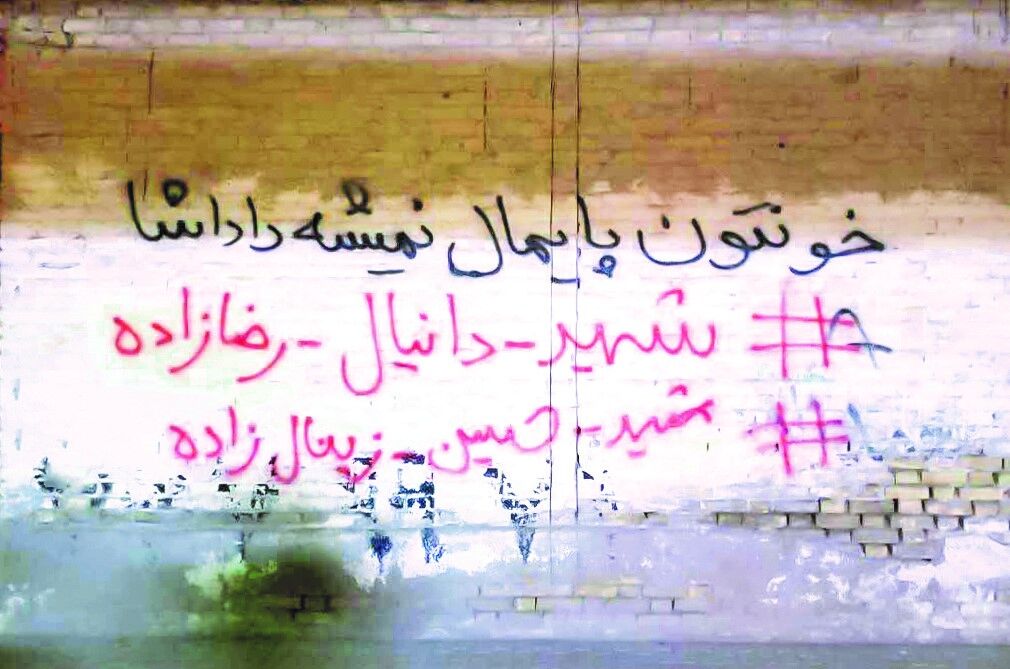 خونتون پایمال نمیشه داداشا
# شهید-دانیال-رضازاده
# شهید-حسین-زینال زاده